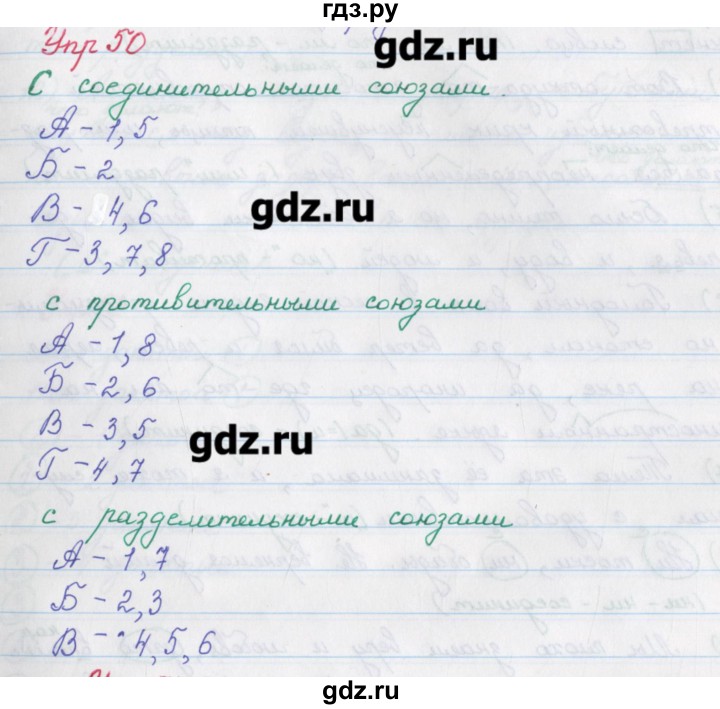 гдз.ру
Упр 50
gdz.ru
С соединительными союзами.
А - 1, 5
Б - 2
В - 4, 6
gdz.ru
Г - 3, 7, 8
с противительными союзами
А - 1, 8
Б - 2, 6
В - 3, 5
gdz.ru
Г - 4, 7
с разделительными союзами
А - 1, 7
Б - 2, 3
В - 4, 5, 6
gdz.ru